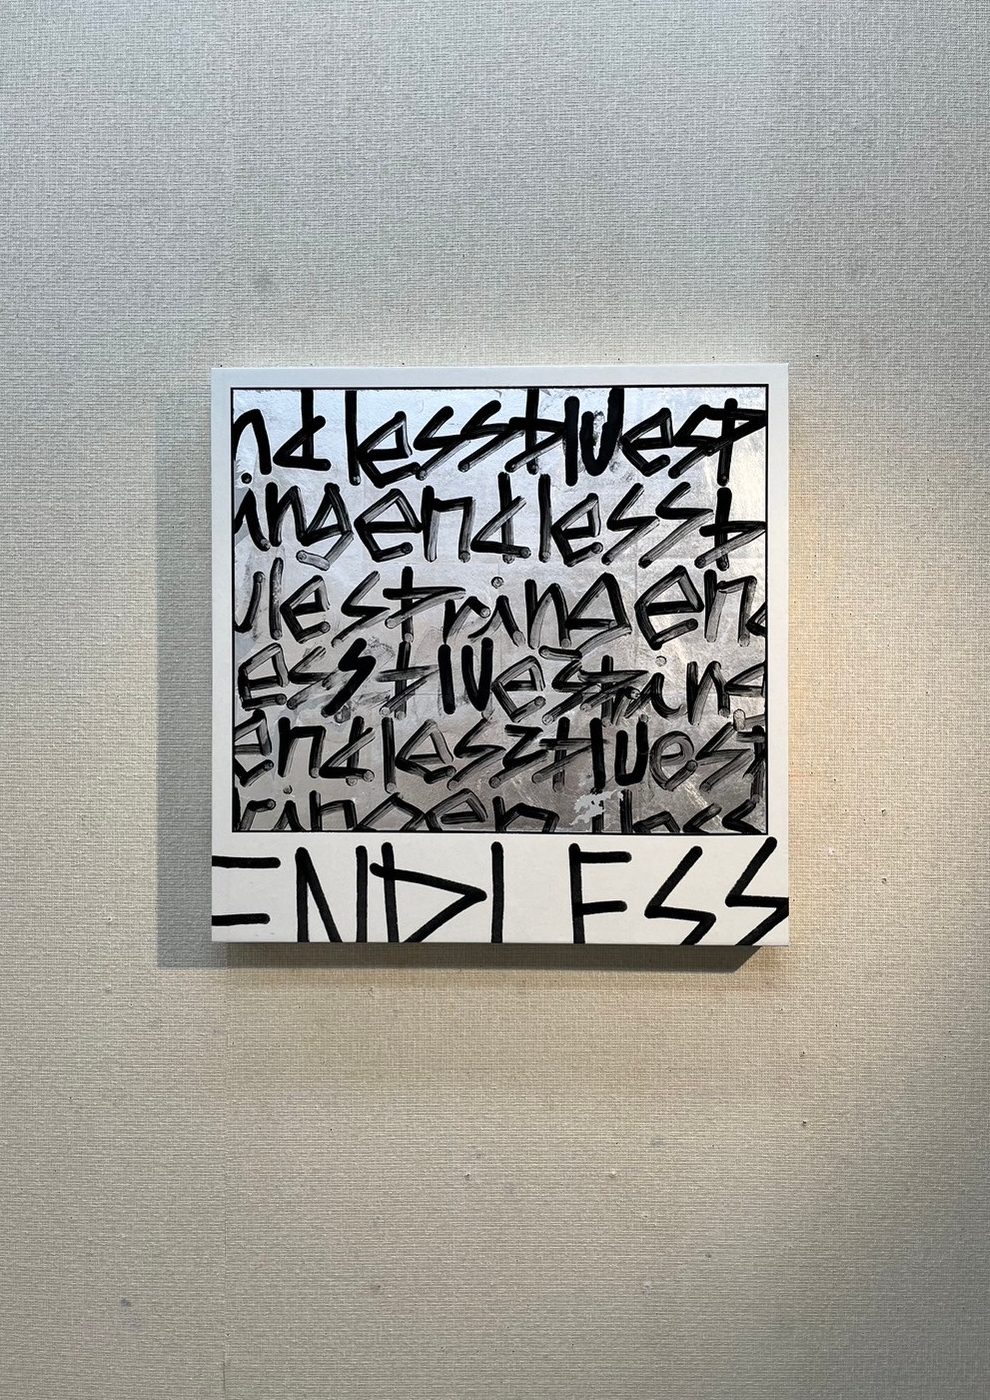 ndlessbluesp
ingendlessb
luespringend
essbluespring
endlessbluesp
ringendless
ENDLESS